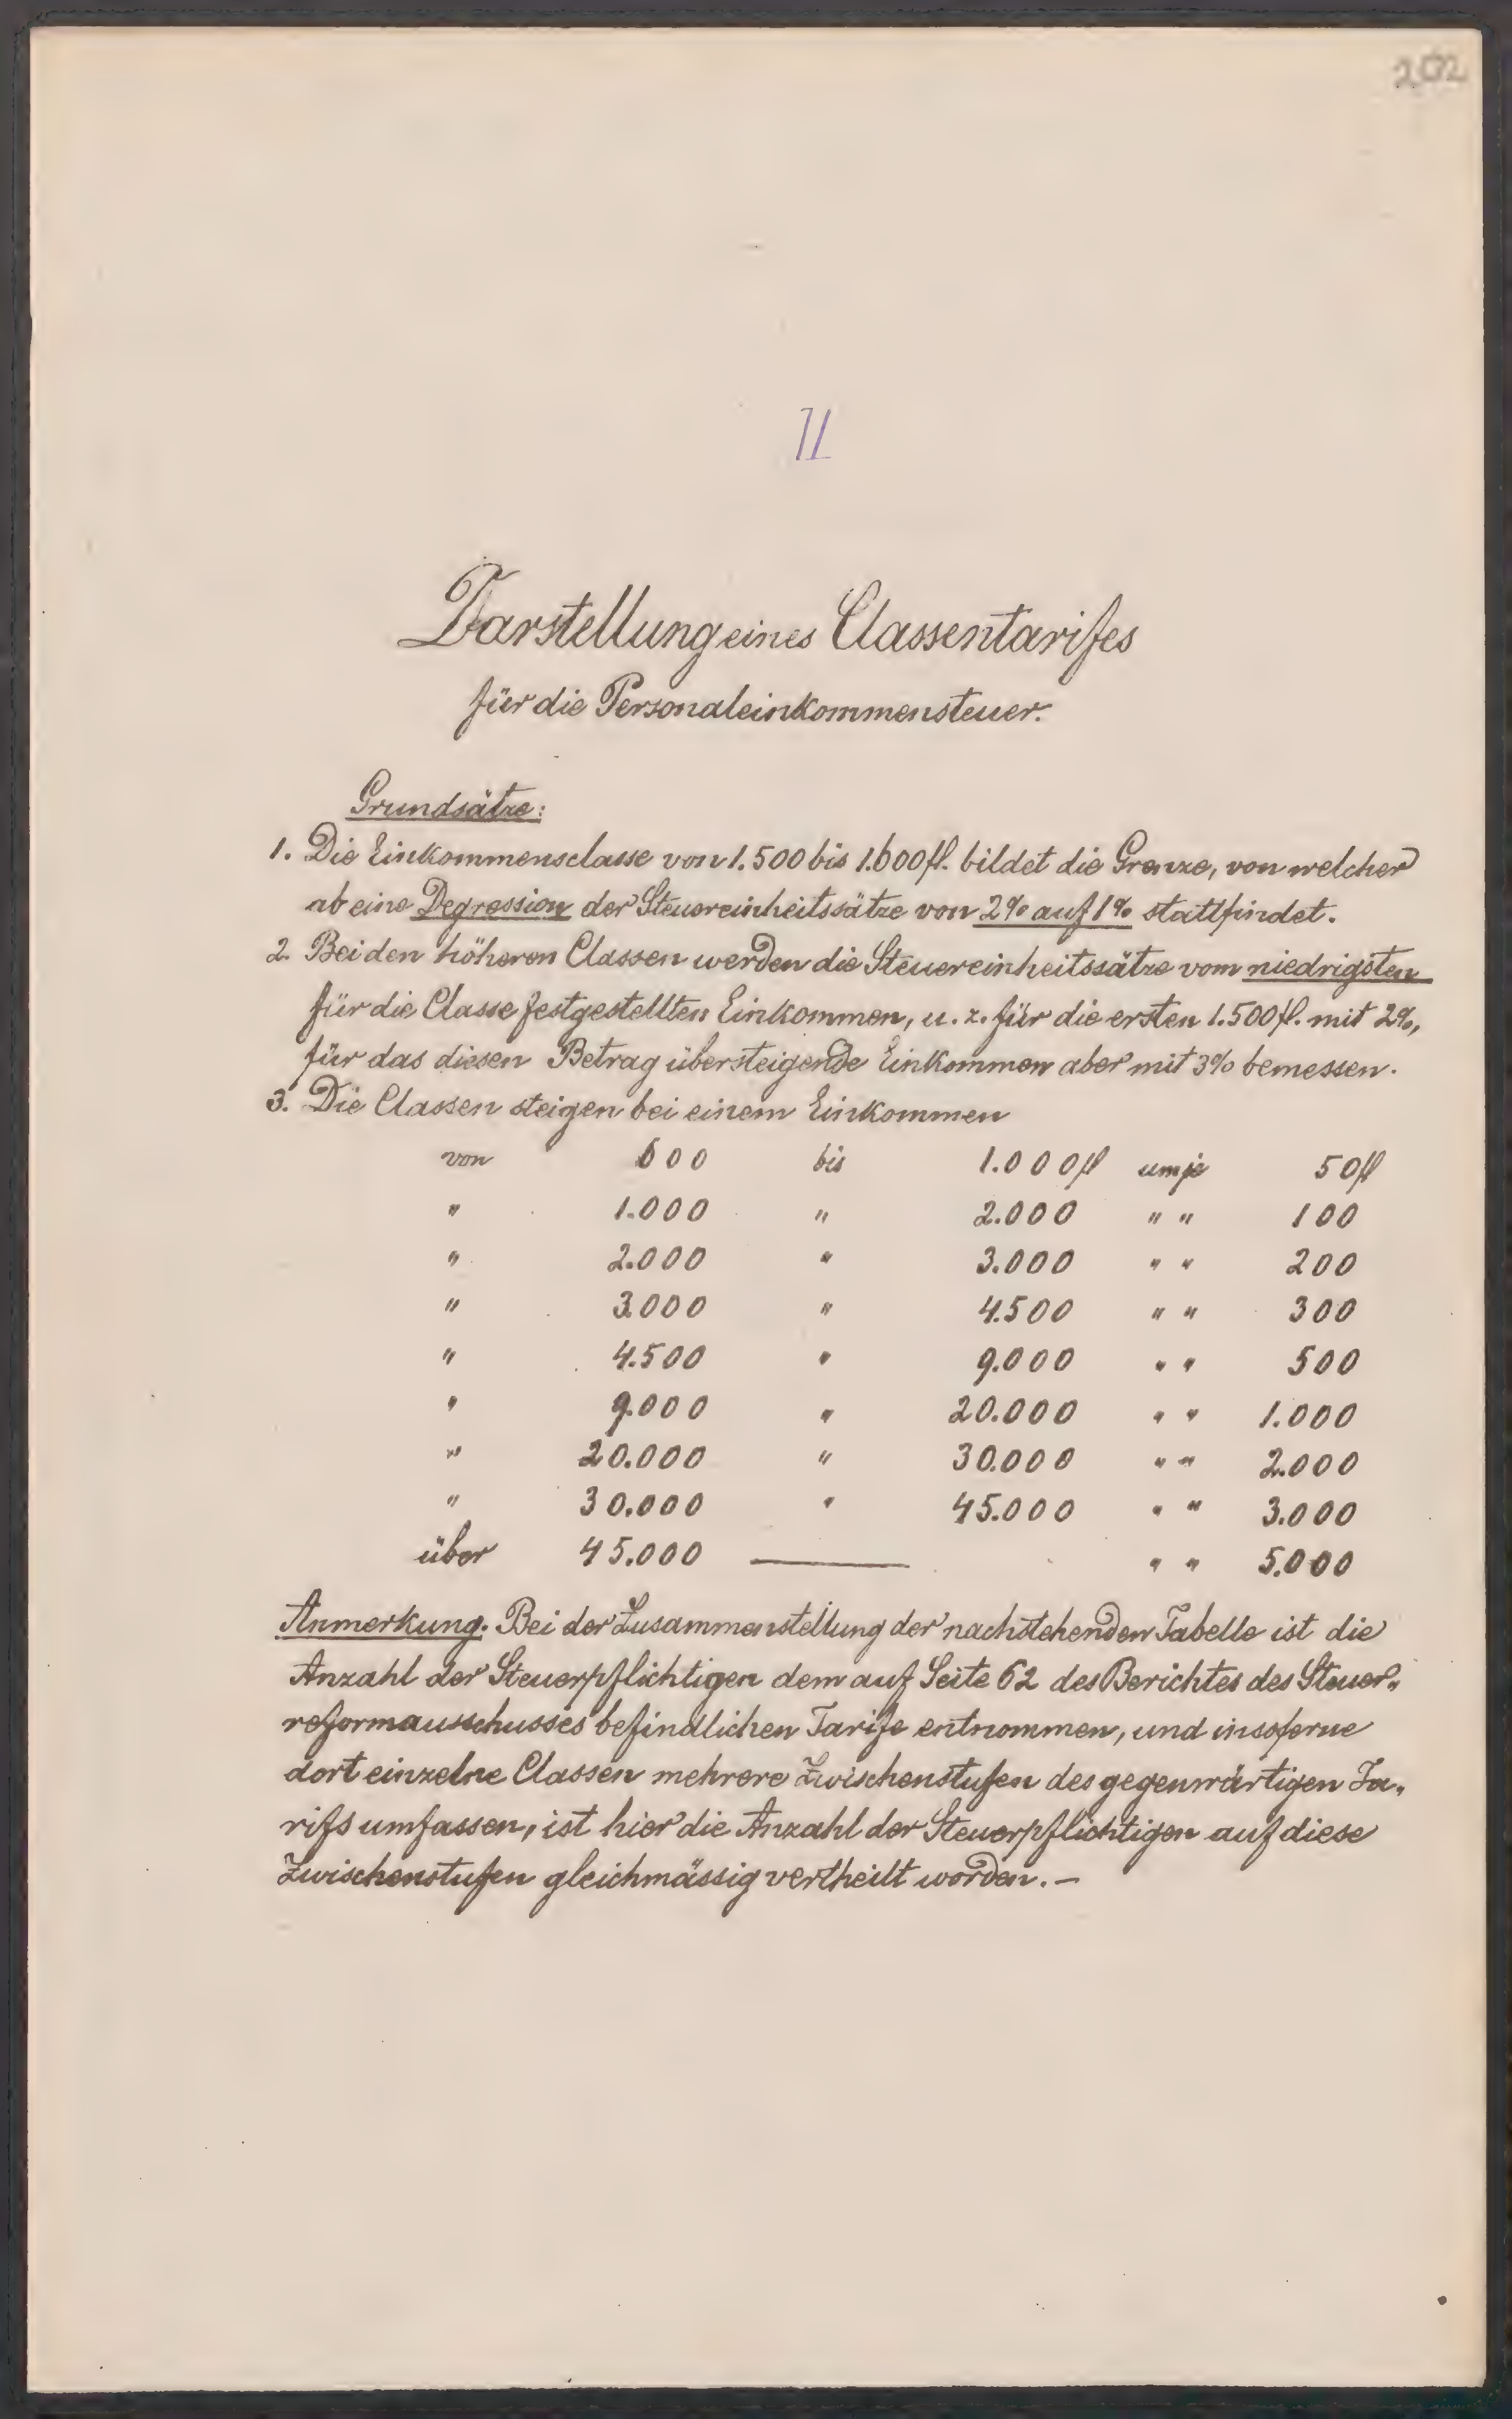 202
II
Darstellung eines Classentarifes
für die Personaleinkommensteuer.
Grundsätze:
1. Die Einkommensclasse von 1.500 bis 1.600 fl. bildet die Grenze, von welcher
ab eine Degression der Steuereinheitssätze von 2% auf 1% stattfindet.
2. Bei den höheren Classen werden die Steuereinheitssätze vom niedrigsten
für die Classe festgestellten Einkommen, u. z. für die ersten 1.500 fl. mit 2%,
für das diesen Betrag übersteigende Einkommen aber mit 3% bemessen.
3. Die Classen steigen bei einem Einkommen
von 600 bis 1.000 fl um je 50 fl
" 1.000 " 2.000 " " 100
" 2.000 " 3.000 " " 200
" 3.000 " 4.500 " " 300
" 4.500 " 9.000 " " 500
" 9.000 " 20.000 " " 1.000
" 20.000 " 30.000 " " 2.000
" 30.000 " 45.000 " " 3.000
über 45.000 — " " 5.000
Anmerkung. Bei der Zusammenstellung der nachstehenden Tabelle ist die
Anzahl der Steuerpflichtigen dem auf Seite 62 des Berichtes des Steuer-
reformausschusses befindlichen Tarife entnommen, und insoferne
dort einzelne Classen mehrere Zwischenstufen des gegenwärtigen Ta-
rifs umfassen, ist hier die Anzahl der Steuerpflichtigen auf diese
Zwischenstufen gleichmässig vertheilt worden. –